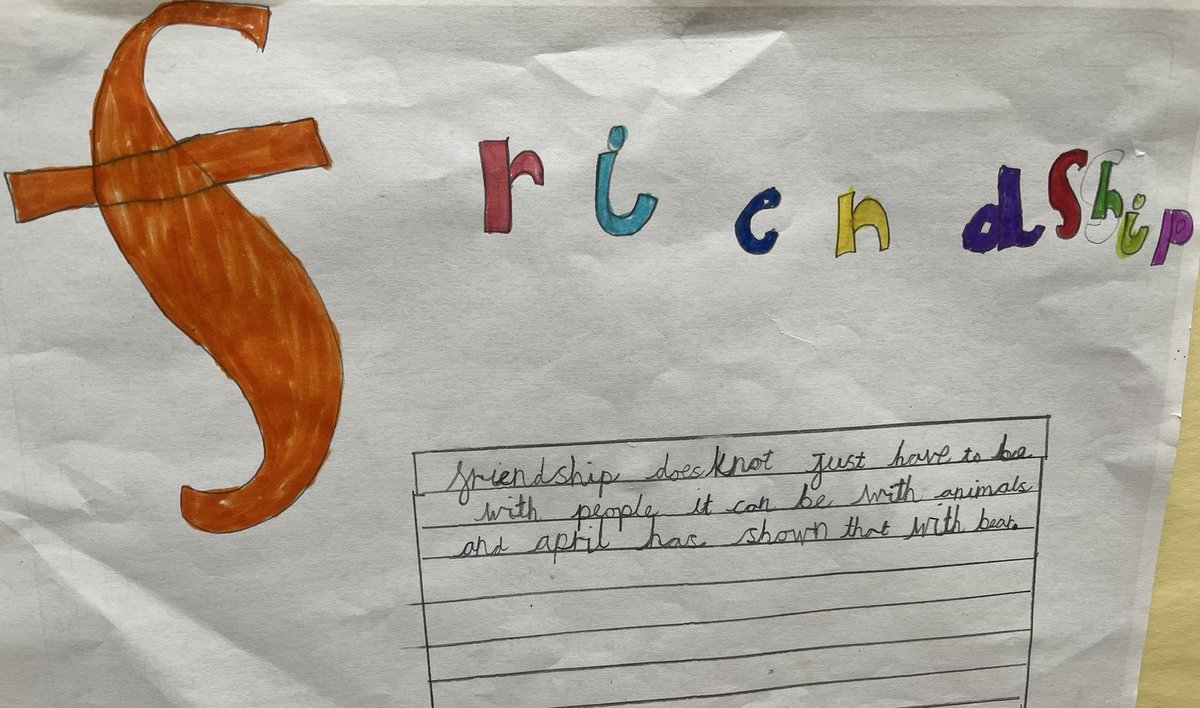 friendship
friendship does knot just have to be
with people it can be with animals
and april has shown that with bear.